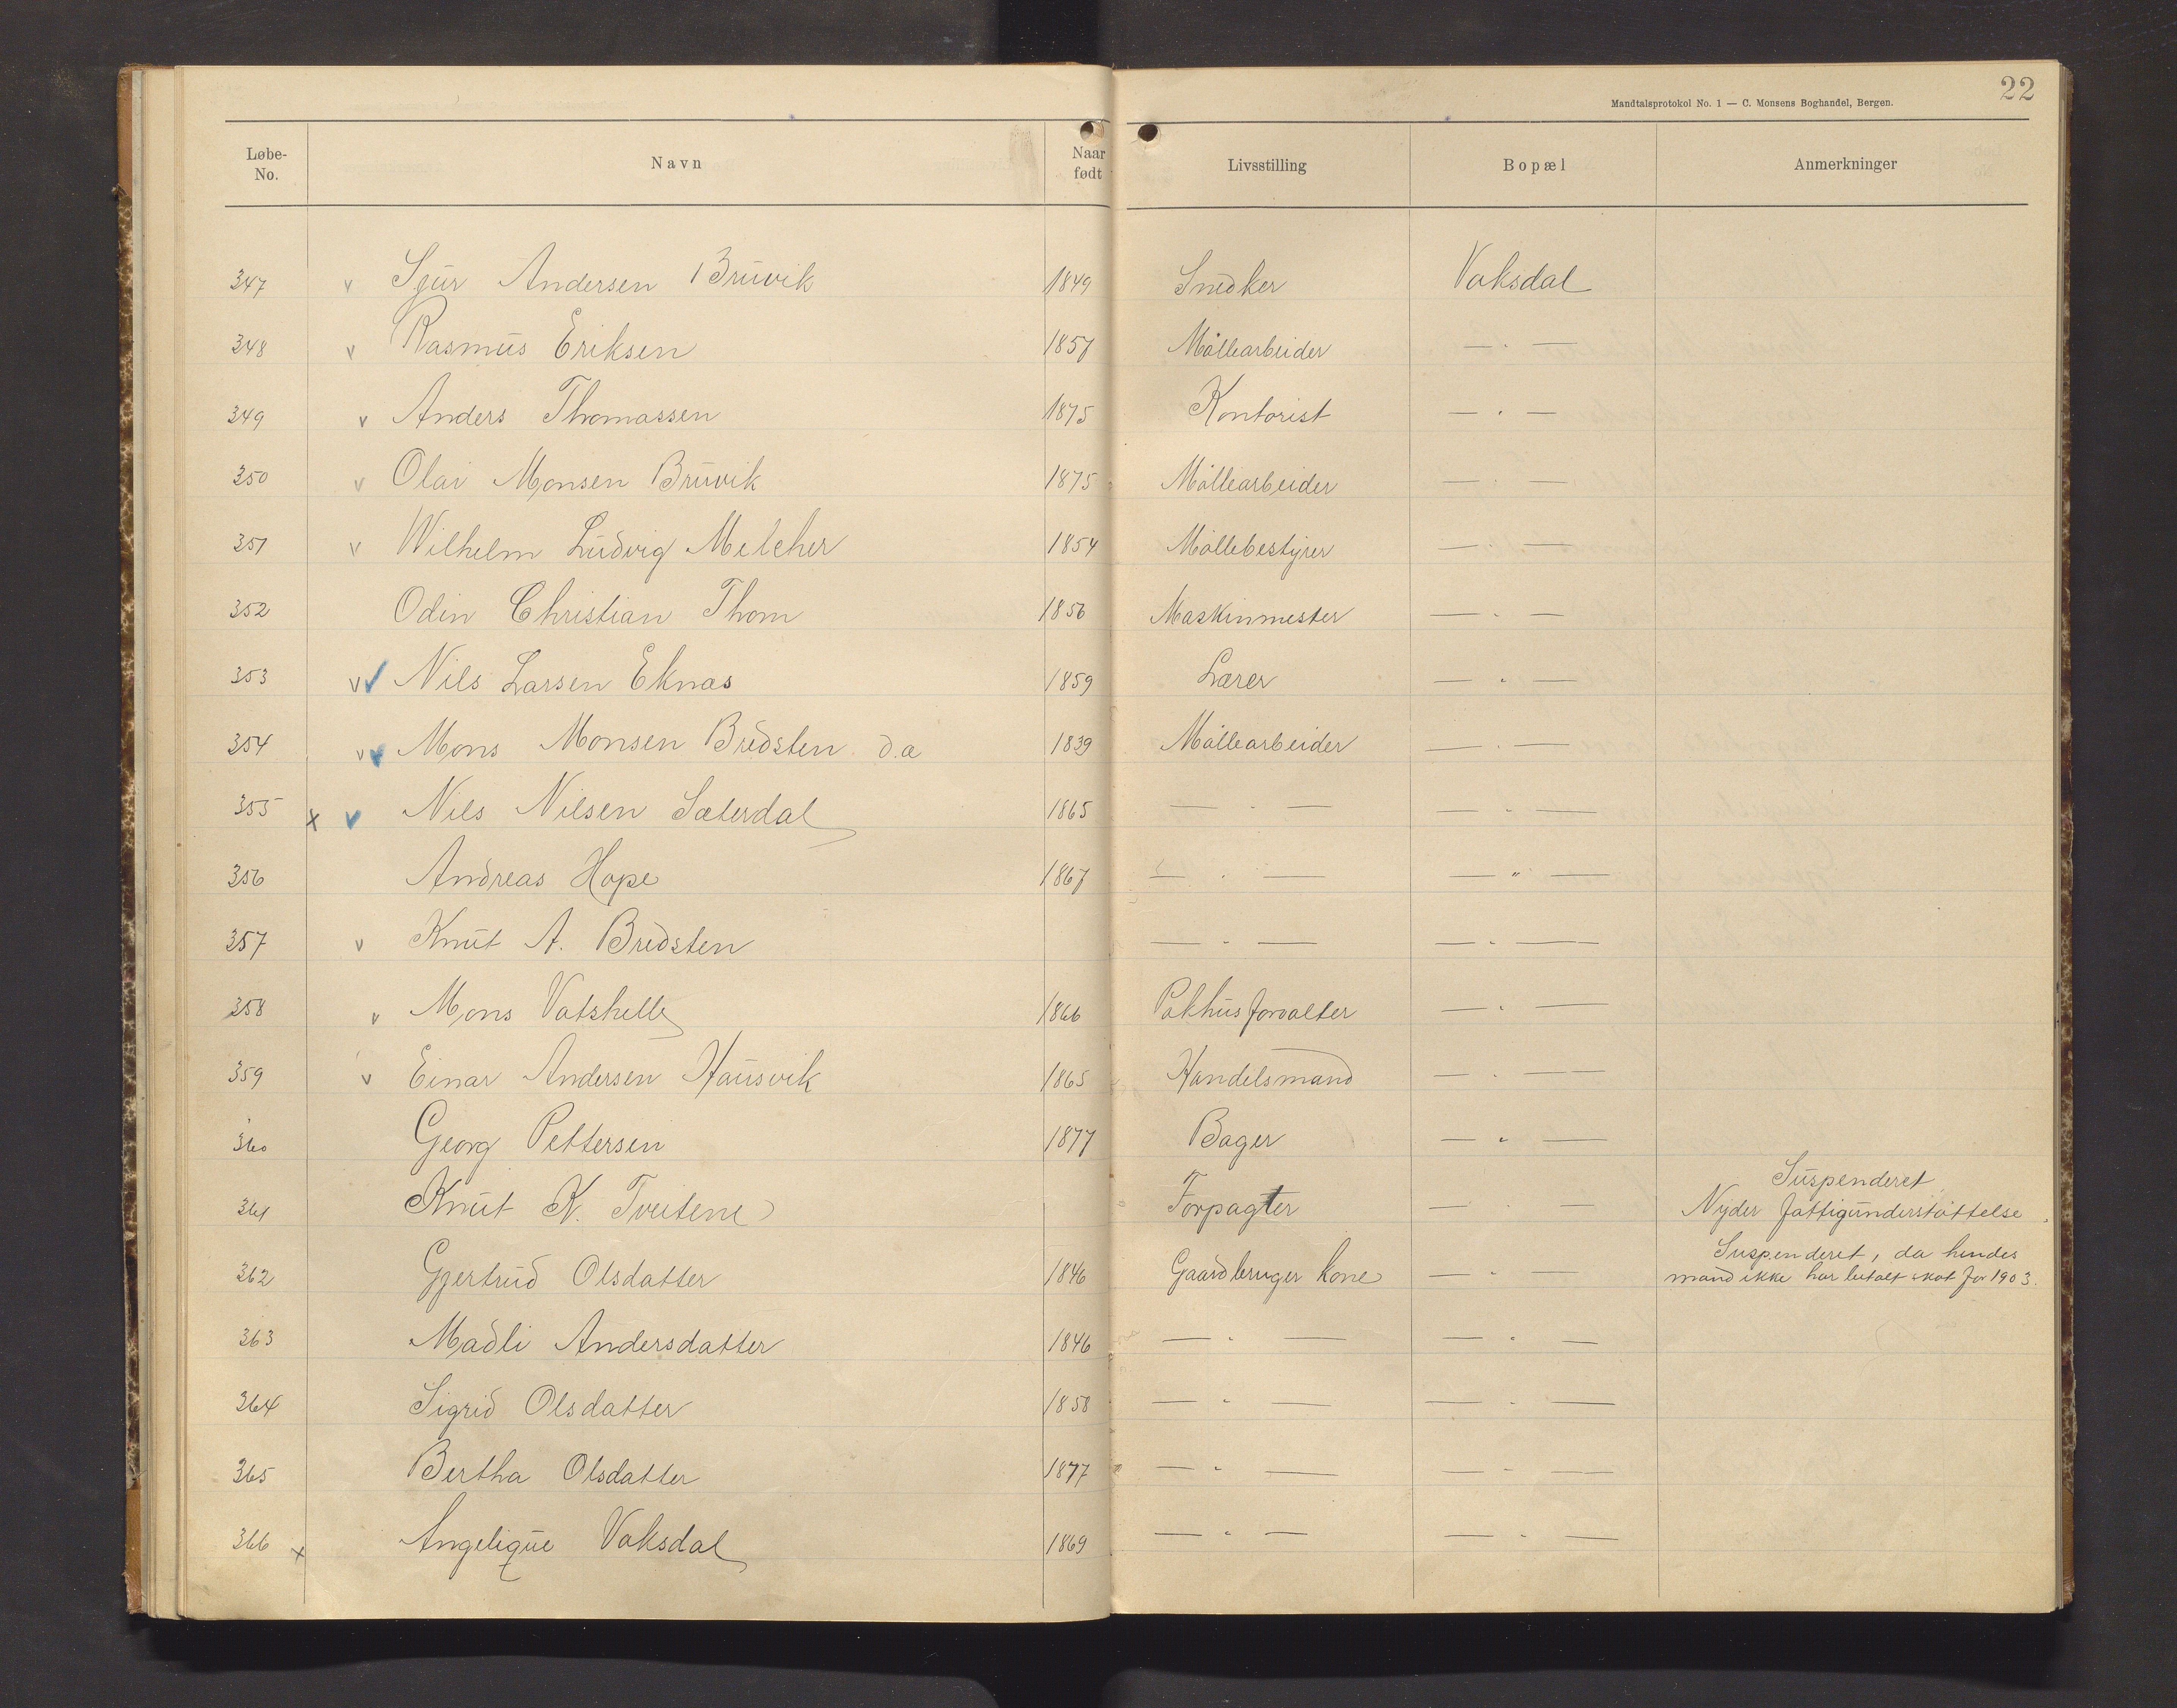 22
Mandtalsprotokol No. 1 — C. Monsens Boghandel, Bergen.
Løbe-No. Navn Naar født Livsstilling Bopæl Anmerkninger
347 v Sjur Andersen Bruvik 1849 Snedker Vaksdal
348 v Rasmus Eriksen 1857 Møllearbeider — " —
349 v Anders Thomassen 1875 Kontorist — " —
350 v Olai Monsen Bruvik 1875 Møllearbeider — " —
351 v Wilhelm Ludvig Melcher 1854 Møllebestyrer — " —
352 Odin Christian Thom 1856 Maskinmester — " —
353 v v Nils Larsen Eknæs 1859 Lærer — " —
354 v v Mons Monsen Bredsten d.æ 1839 Møllearbeider — " —
355 x v Nils Nilsen Sæterdal 1865 — " — — " —
356 Andreas Hope 1867 — " — — " —
357 v Knut A. Bredsten — " — — " —
358 v Mons Vatshelle 1866 Pakhusforvalter — " —
359 v Einar Andersen Hausvik 1865 Handelsmand — " —
360 Georg Pettersen 1877 Bager — " —
361 Knut K. Tveitene Forpagter — " — Suspenderet
Nyder fattigunderstøttelse.
362 Gjertrud Olsdatter 1846 Gaardbruger kone — " — Suspenderet, da hendes
mand ikke har betalt skat for 1903.
363 Madli Andersdatter 1846 — " — — " —
364 Sigrid Olsdatter 1858 — " — — " —
365 Bertha Olsdatter 1877 — " — — " —
366 x Angelique Vaksdal 1869 — " — — " —